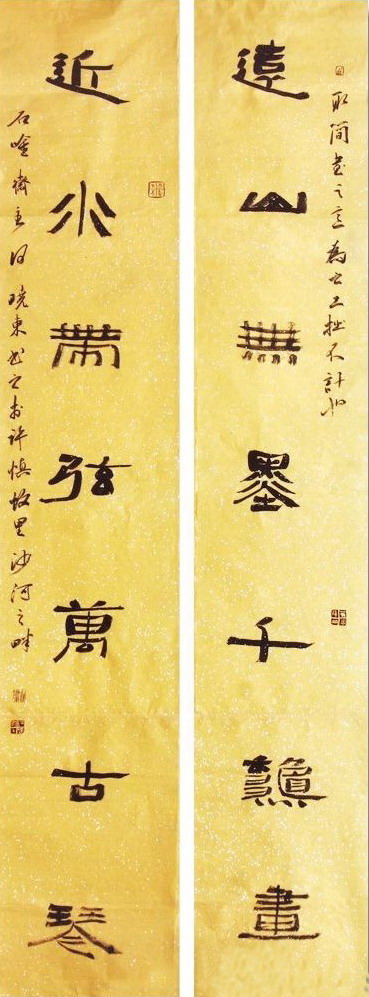 取簡書之意為之工拙不計也
遠山無墨千龝畫
近水帶弦萬古琴
石齋主曉東書之於許慎故里沙河之畔